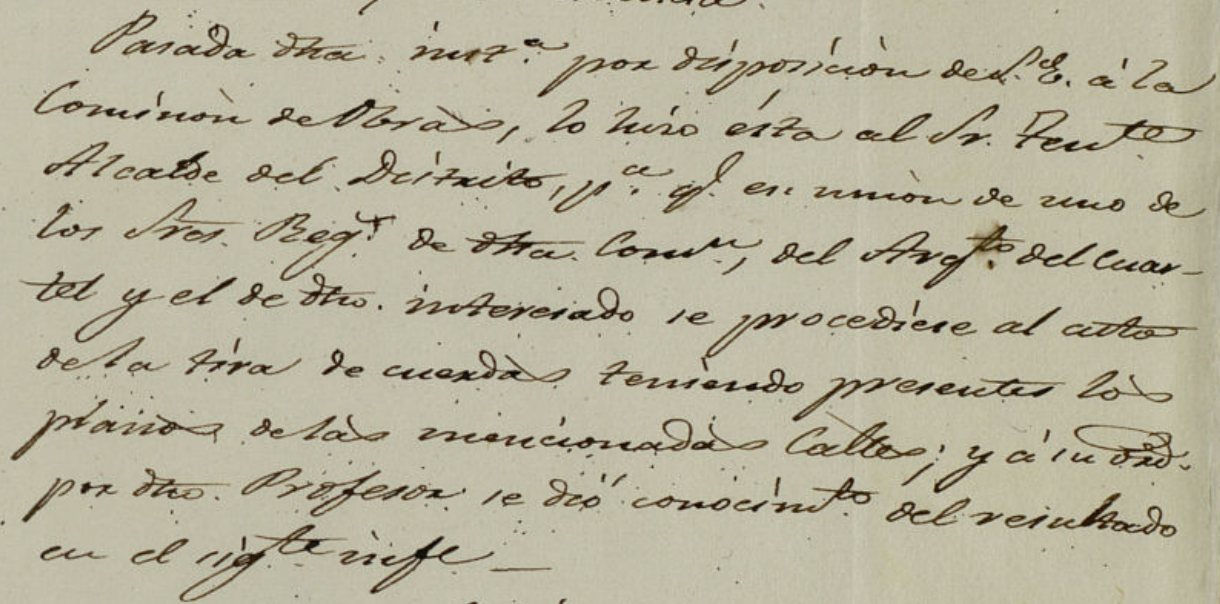 Pasada dha. inst.ª por disposición de S.E. á la
Comision de Obras, lo hizo ésta al Sr. Tente
Alcalde del Distrito, p.ª q.e en union de uno de
los Sres. Reg.s de dha. Comon, del Arqto. del Cuar-
tel y el de dho. interesado se procediese al acto
de la tira de cuerdas teniendo presentes los
planos de las mencionadas Calles; y á su
por dho. Profesor se dió conocimto del resultado
en el sigte infe —